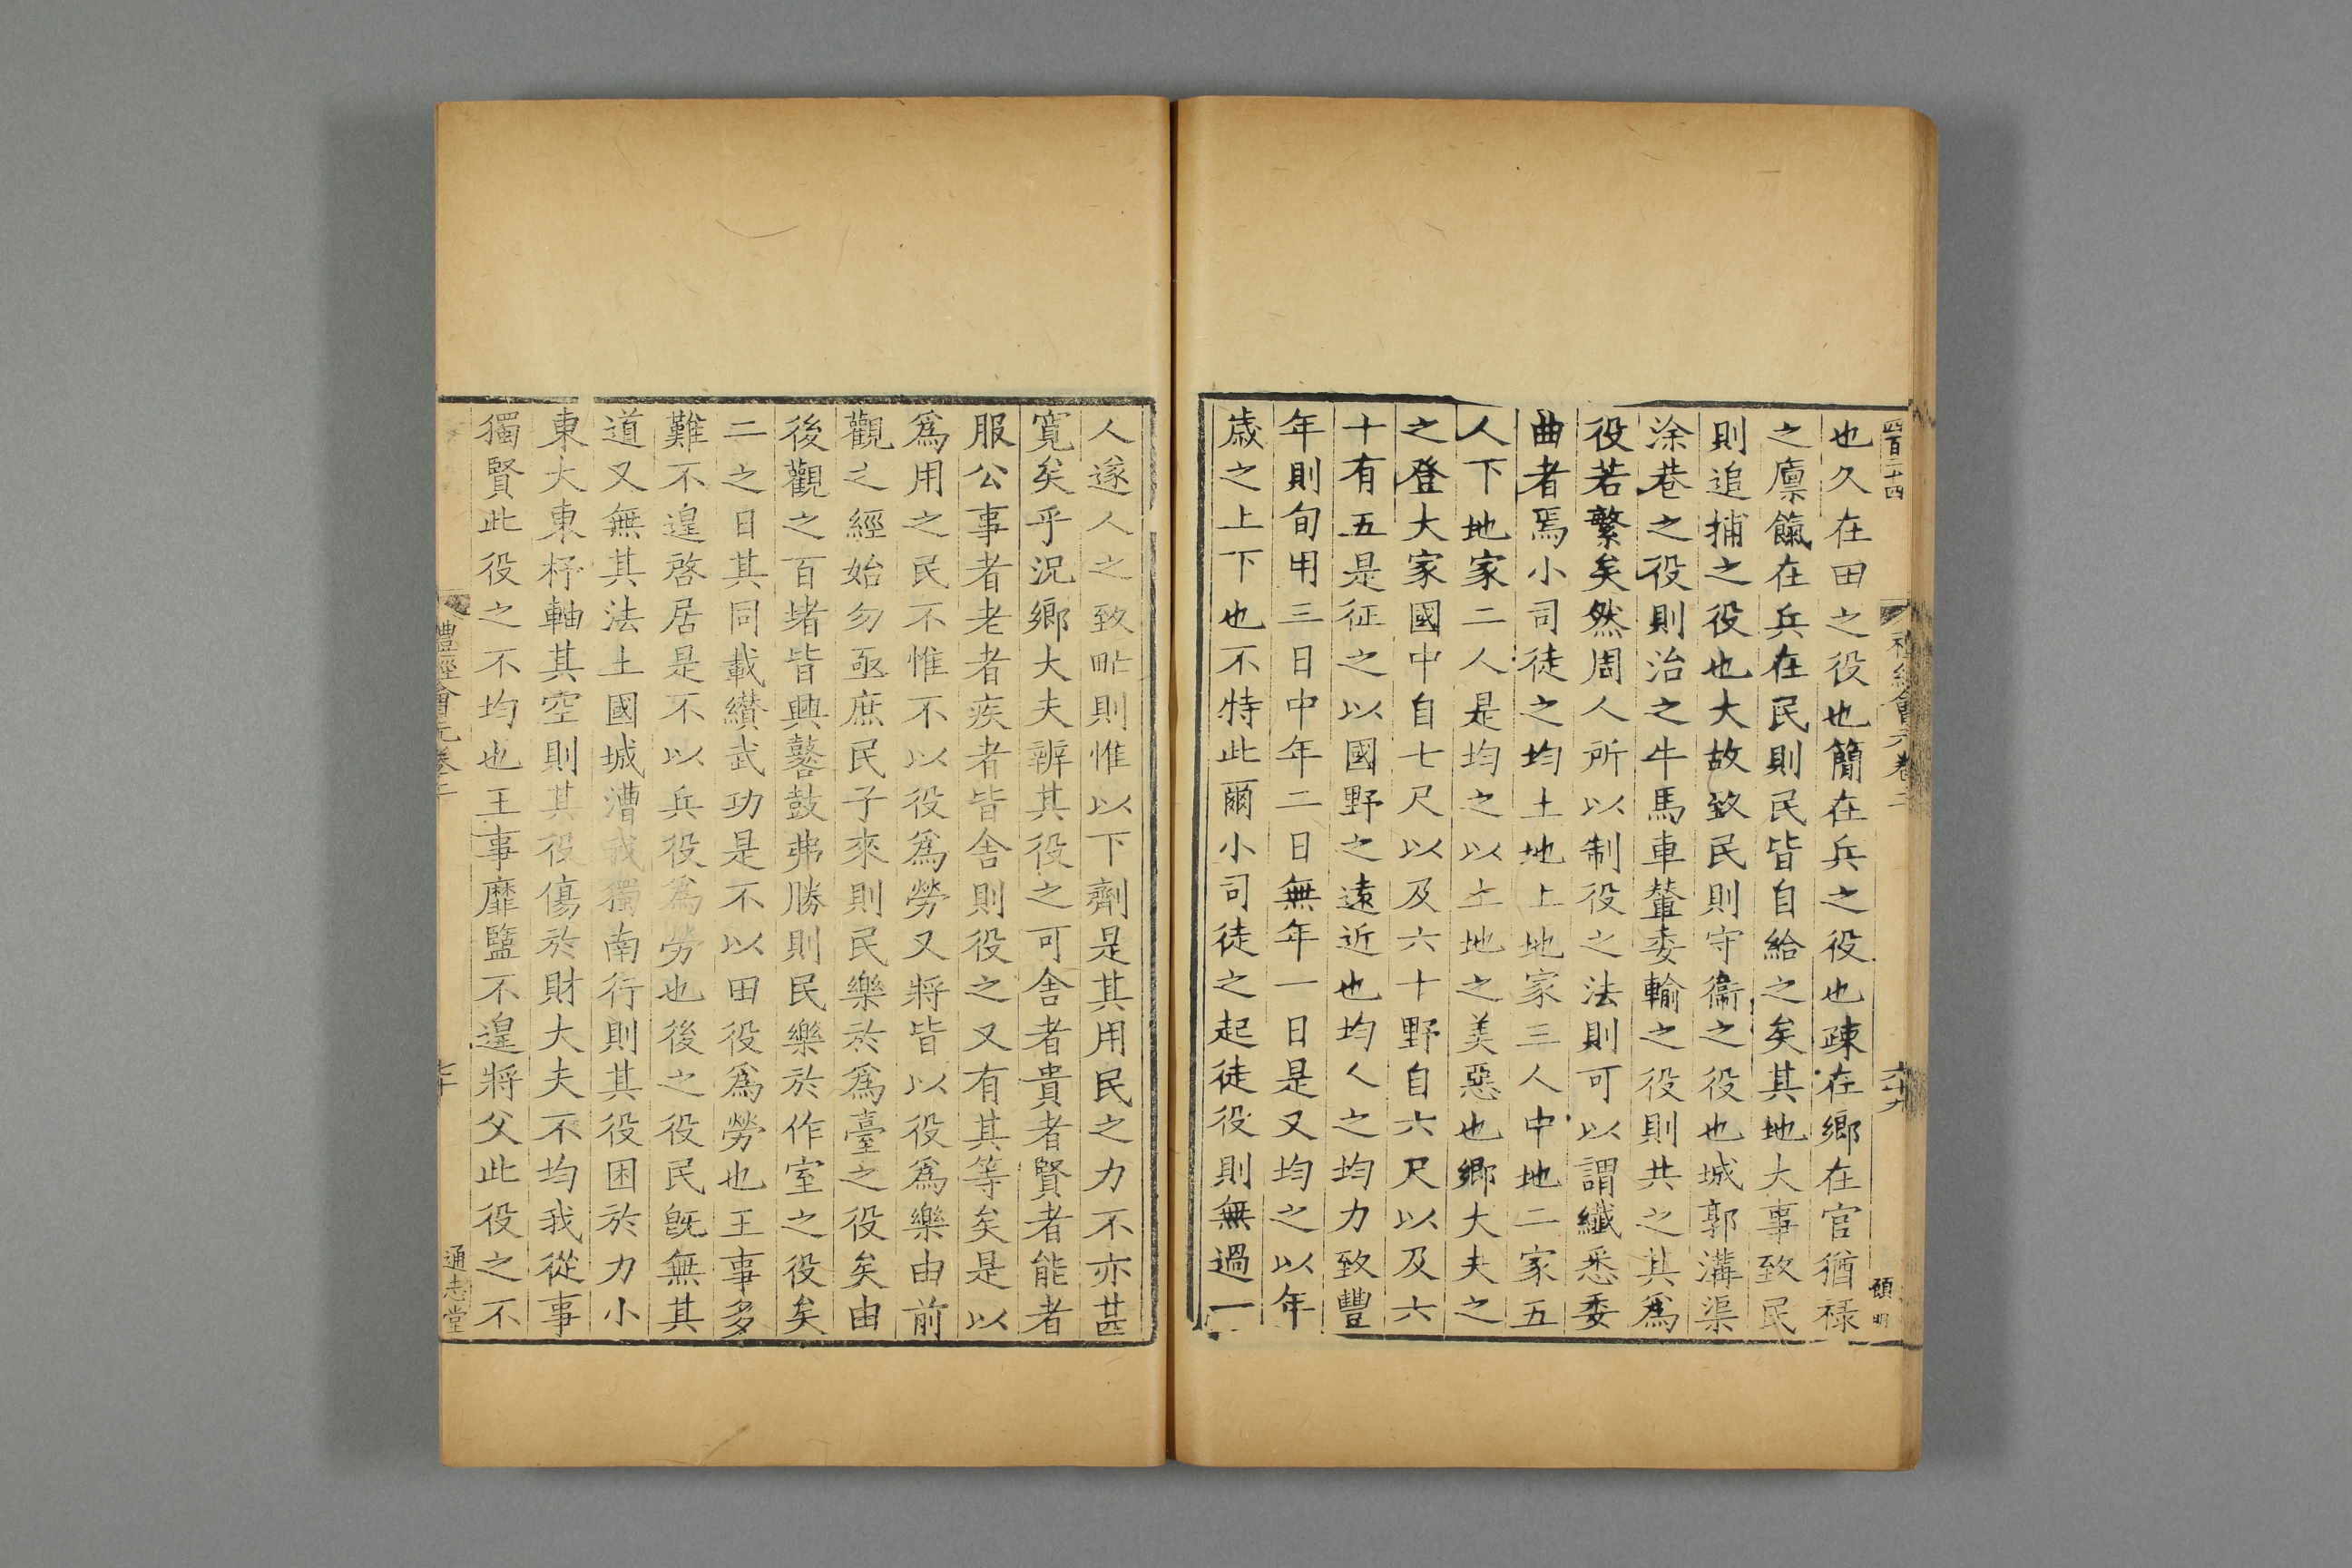 四百二十四
也久在田之役也簡在兵之役也疎在鄉在官猶祿
之廪餼在兵在民則民皆自給之矣其地大事致民
則追捕之役也大故致民則守衞之役也城郭溝渠
涂巷之役則治之牛馬車輦委輸之役則共之其爲
役若繁矣然周人所以制役之法則可以謂纖悉委
曲者焉小司徒之均土地上地家三人中地二家五
人下地家二人是均之以土地之美惡也鄉大夫之
之登大家國中自七尺以及六十野自六尺以及六
十有五是征之以國野之遠近也均人之均力致豐
年則旬用三日中年二日無年一日是又均之以年
歳之上下也不特此爾小司徒之起徒役則無過一
人遂人之致甿則惟以下劑是其用民之力不亦甚
寛矣乎況鄉大夫辨其役之可舍者貴者賢者能者
服公事者老者疾者皆舍則役之又有其等矣是以
爲用之民不惟不以役爲勞又將皆以役爲樂由前
觀之經始勿亟庶民子來則民樂於爲臺之役矣由
後觀之百堵皆興鼛鼓弗勝則民樂於作室之役矣
二之日其同載纘武功是不以田役爲勞也王事多
難不遑啓居是不以兵役爲勞也後之役民旣無其
道又無其法土國城漕我獨南行則其役困於力小
東大東杼軸其空則其役傷於財大夫不均我從事
獨賢此役之不均也王事靡盬不遑將父此役之不
禮經會元卷二
通志堂